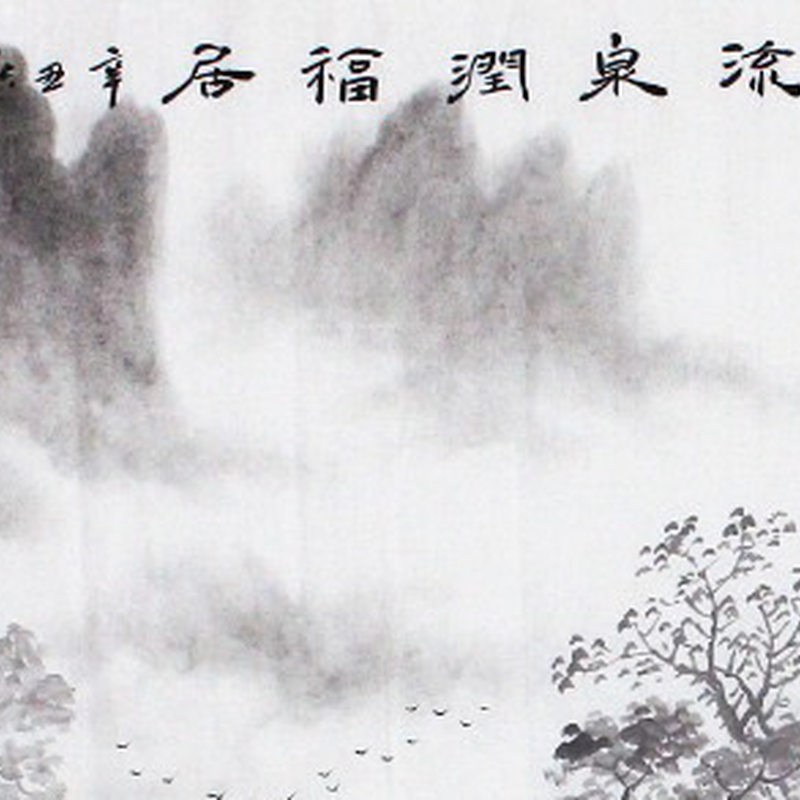 流泉潤福居 辛丑